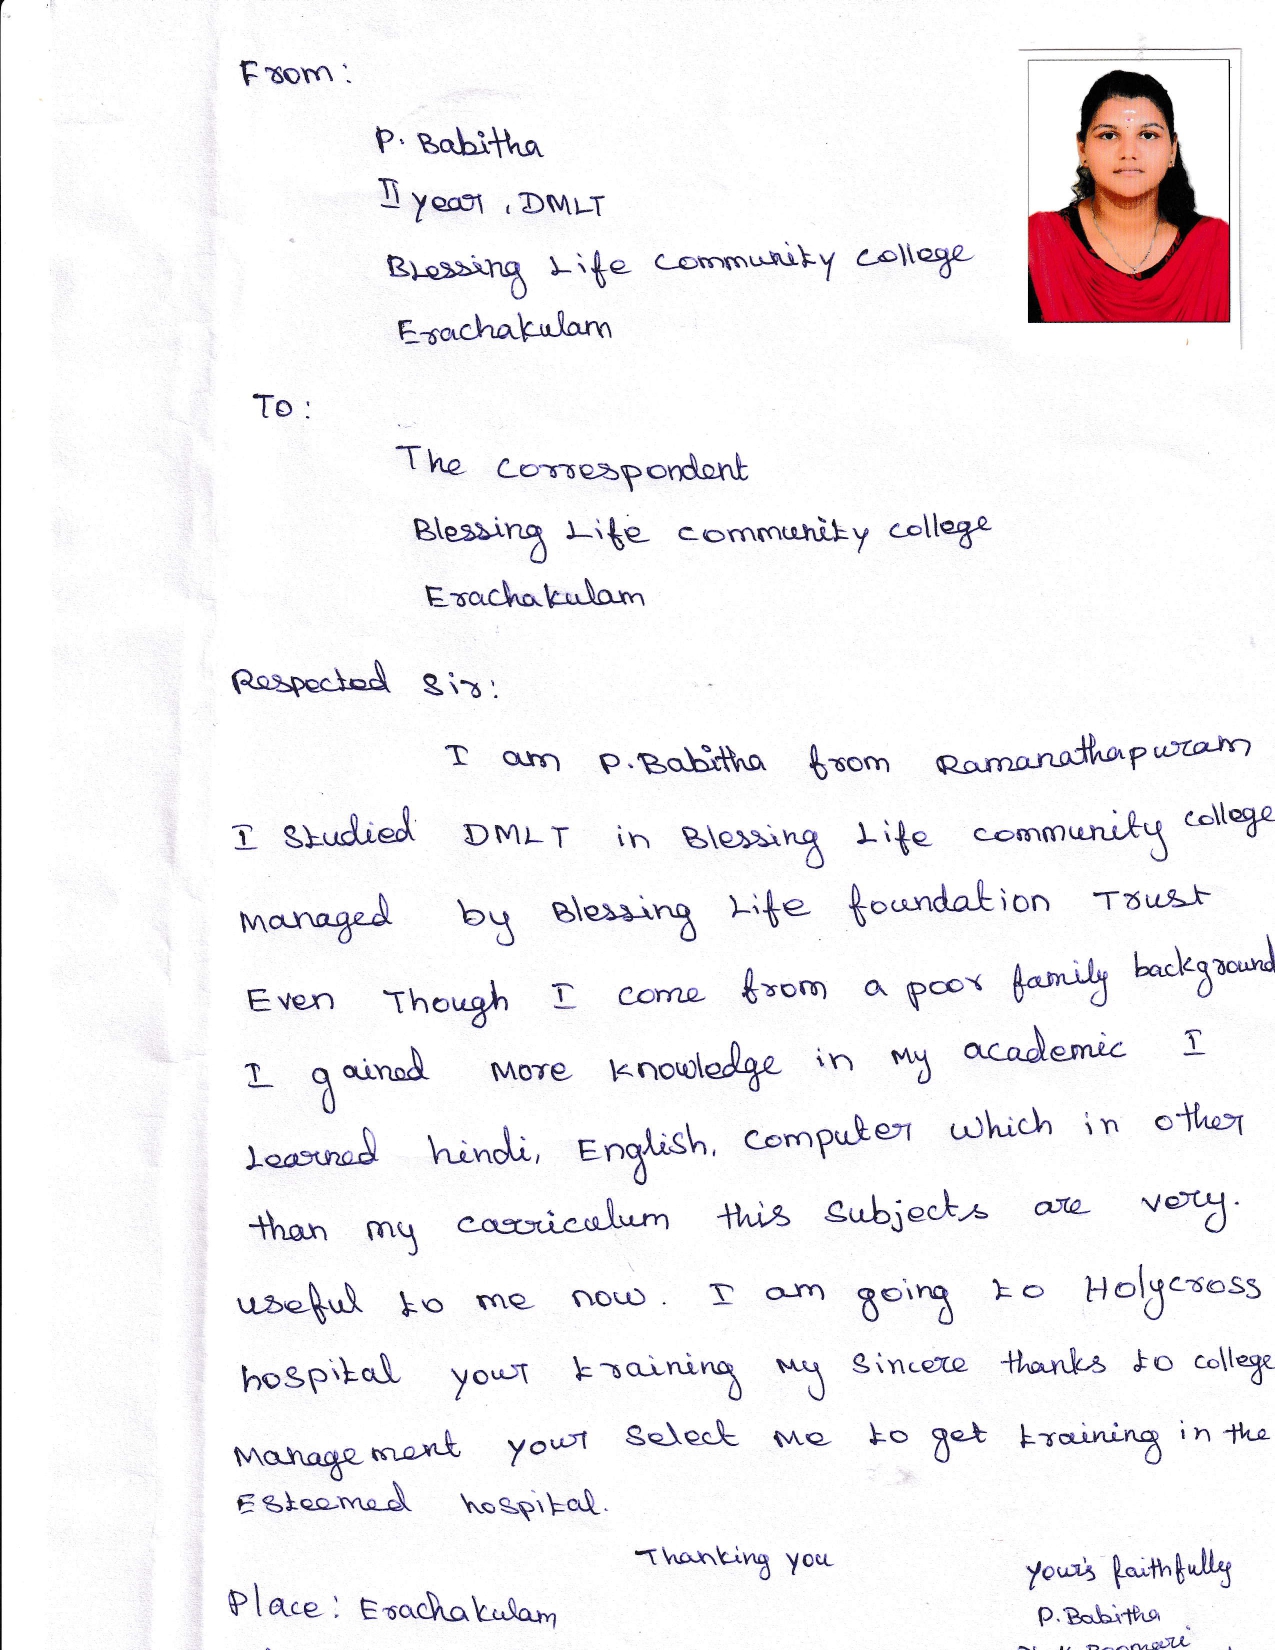 From:
P. Babitha
II year, DMLT
Blessing Life community college
Erachakulam
To:
The correspondent
Blessing Life community college
Erachakulam
Respected Sir:
I am P.Babitha from Ramanathapuram
I Studied DMLT in Blessing Life community college
Managed by Blessing Life foundation Trust
Even Though I come from a poor family background
I gained More knowledge in My academic I
Learned hindi, English, Computer which in other
than my carriculum this Subjects are very.
useful to me now. I am going to Holycross
hospital your training My Sincere thanks to college
Management your Select Me to get training in the
Esteemed hospital.
Thanking you
your's faithfully
Place: Erachakulam
P.Babitha